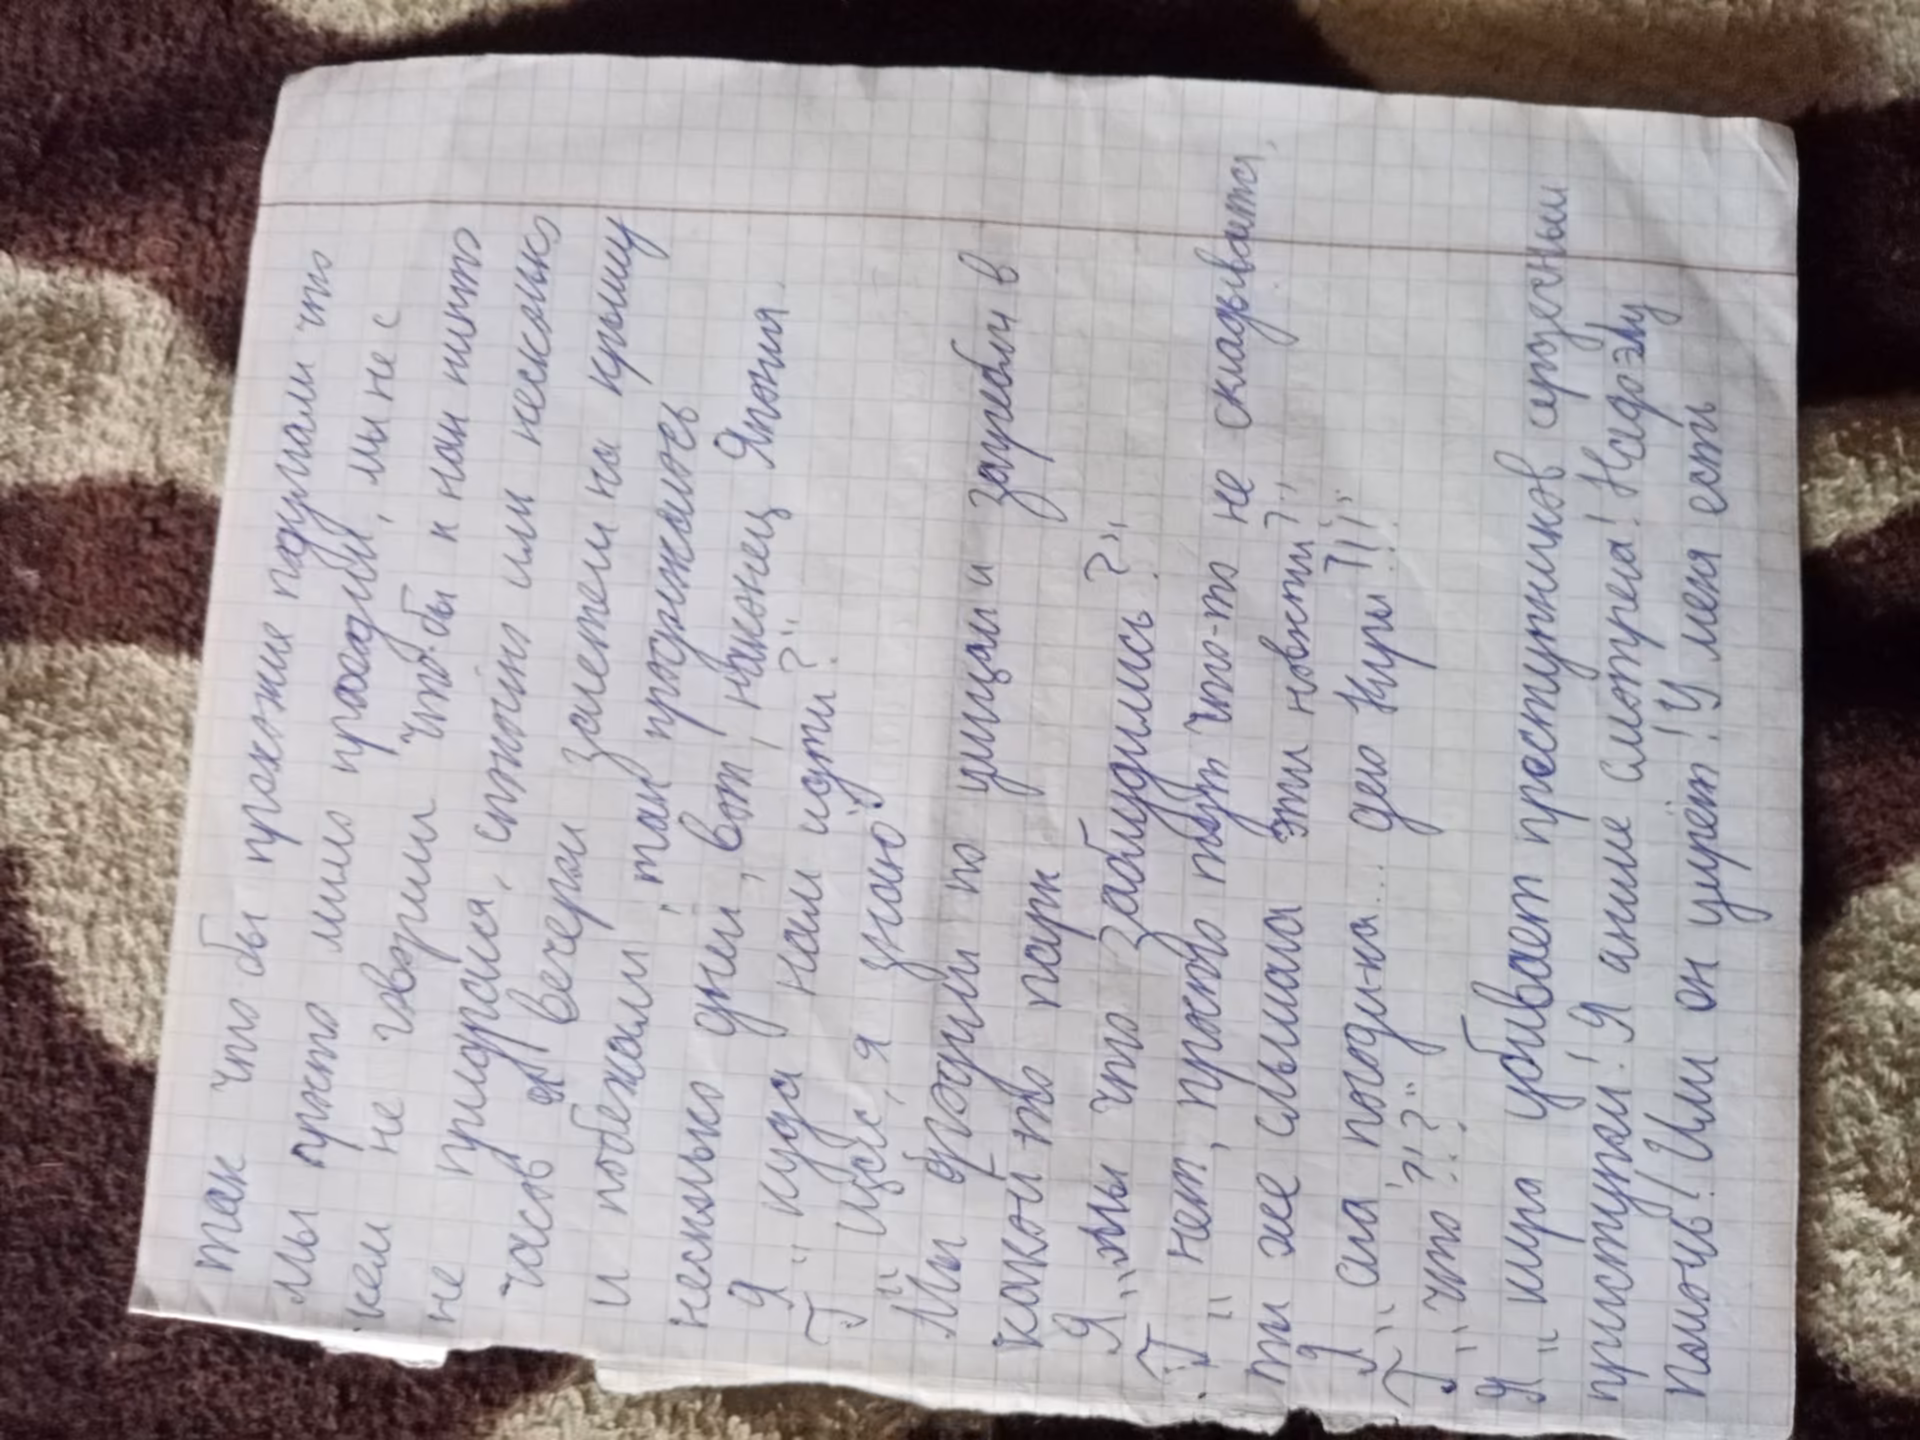 так что бы прохожие подумали что
мы просто мимо проходили, мы не с
кем не говорили что бы к нам никто
не придрался, спокойно или несколько
часов а вечером залетели на крышу
и побежали, так продолжалось
несколько дней, вот, наконец Япония.
Я "куда нам идти?"
Т "Щас, я знаю"
Мы бродили по улицам и забрели в
какой то парк
Я "мы что заблудились?"
Т "нет, просто тут что-то не складывается,
ты же слышала эти новости?"
Я "ага погоди-ка... дело Киры?!!"
Т "что?!?"
Я "кира убивает преступников сердечным
приступом! Я аниме смотрела! Надо эму
помочь! Или он умрёт! У меня есть